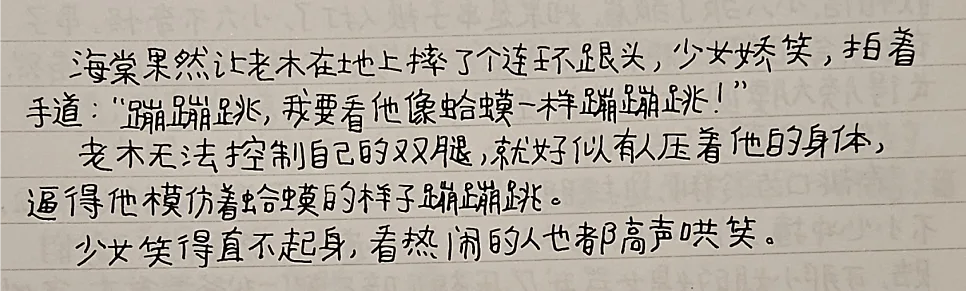 海棠果然让老木在地上摔了个连环跟头，少女娇笑，拍着
手道：“蹦蹦跳，我要看他像蛤蟆一样蹦蹦跳！”
老木无法控制自己的双腿，就好似有人压着他的身体，
逼得他模仿着蛤蟆的样子蹦蹦跳。
少女笑得直不起身，看热闹的人也都高声哄笑。